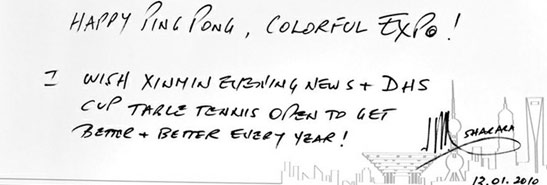 HAPPY PING PONG, COLORFUL EXPO!
I WISH XINMIN EVENING NEWS + DHS
CUP TABLE TENNIS OPEN TO GET
BETTER + BETTER EVERY YEAR!
SHARARA
12.01.2010